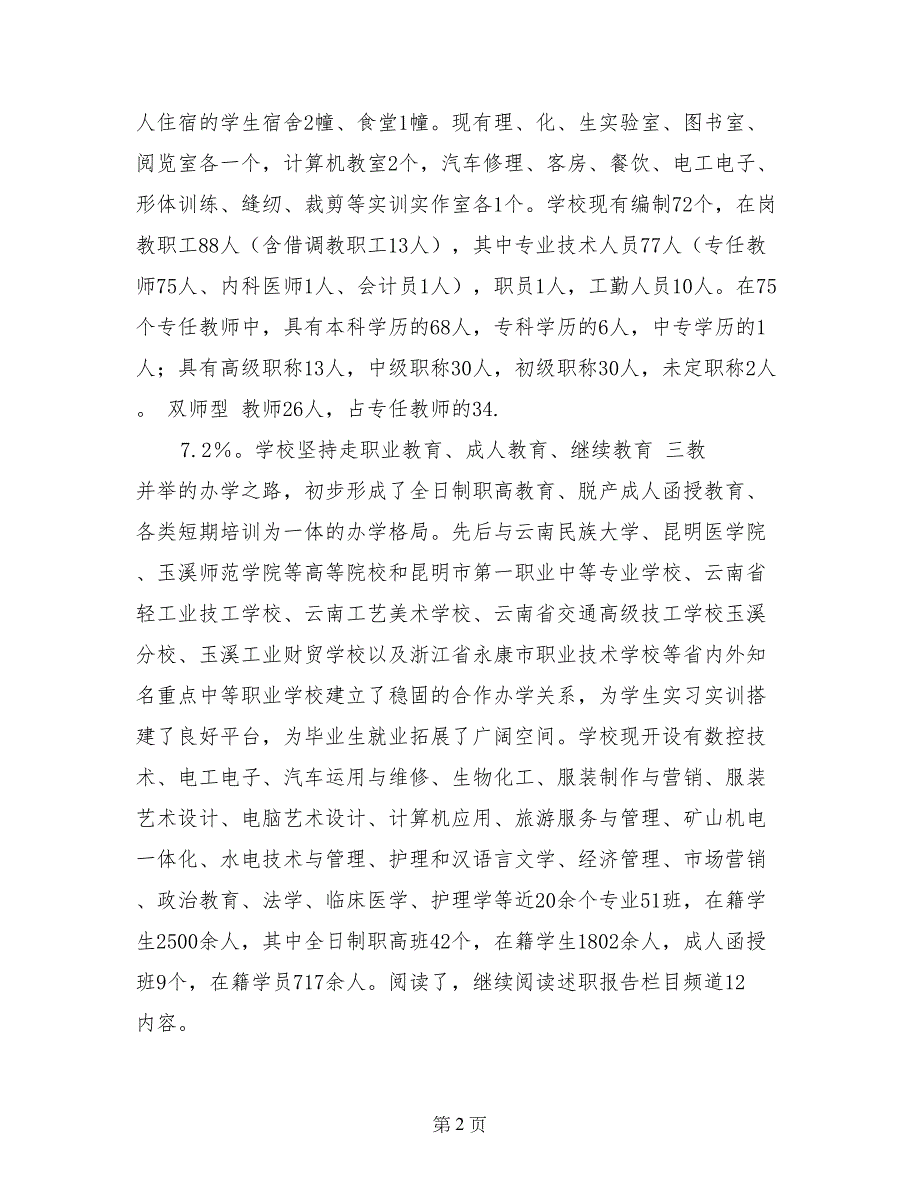 人住宿的学生宿舍2幢、食堂1幢。现有理、化、生实验室、图书室、
阅览室各一个，计算机教室2个，汽车修理、客房、餐饮、电工电子、
形体训练、缝纫、裁剪等实训实作室各1个。学校现有编制72个，在岗
教职工88人（含借调教职工13人），其中专业技术人员77人（专任教
师75人、内科医师1人、会计员1人），职员1人，工勤人员10人。在75
个专任教师中，具有本科学历的68人，专科学历的6人，中专学历的1
人；具有高级职称13人，中级职称30人，初级职称30人，未定职称2人
。 双师型 教师26人，占专任教师的34.
7.2%。学校坚持走职业教育、成人教育、继续教育 三教
并举的办学之路，初步形成了全日制职高教育、脱产成人函授教育、
各类短期培训为一体的办学格局。先后与云南民族大学、昆明医学院
、玉溪师范学院等高等院校和昆明市第一职业中等专业学校、云南省
轻工业技工学校、云南工艺美术学校、云南省交通高级技工学校玉溪
分校、玉溪工业财贸学校以及浙江省永康市职业技术学校等省内外知
名重点中等职业学校建立了稳固的合作办学关系，为学生实习实训搭
建了良好平台，为毕业生就业拓展了广阔空间。学校现开设有数控技
术、电工电子、汽车运用与维修、生物化工、服装制作与营销、服装
艺术设计、电脑艺术设计、计算机应用、旅游服务与管理、矿山机电
一体化、水电技术与管理、护理和汉语言文学、经济管理、市场营销
、政治教育、法学、临床医学、护理学等近20余个专业51班，在籍学
生2500余人，其中全日制职高班42个，在籍学生1802余人，成人函授
班9个，在籍学员717余人。阅读了，继续阅读述职报告栏目频道12
内容。
第 2 页